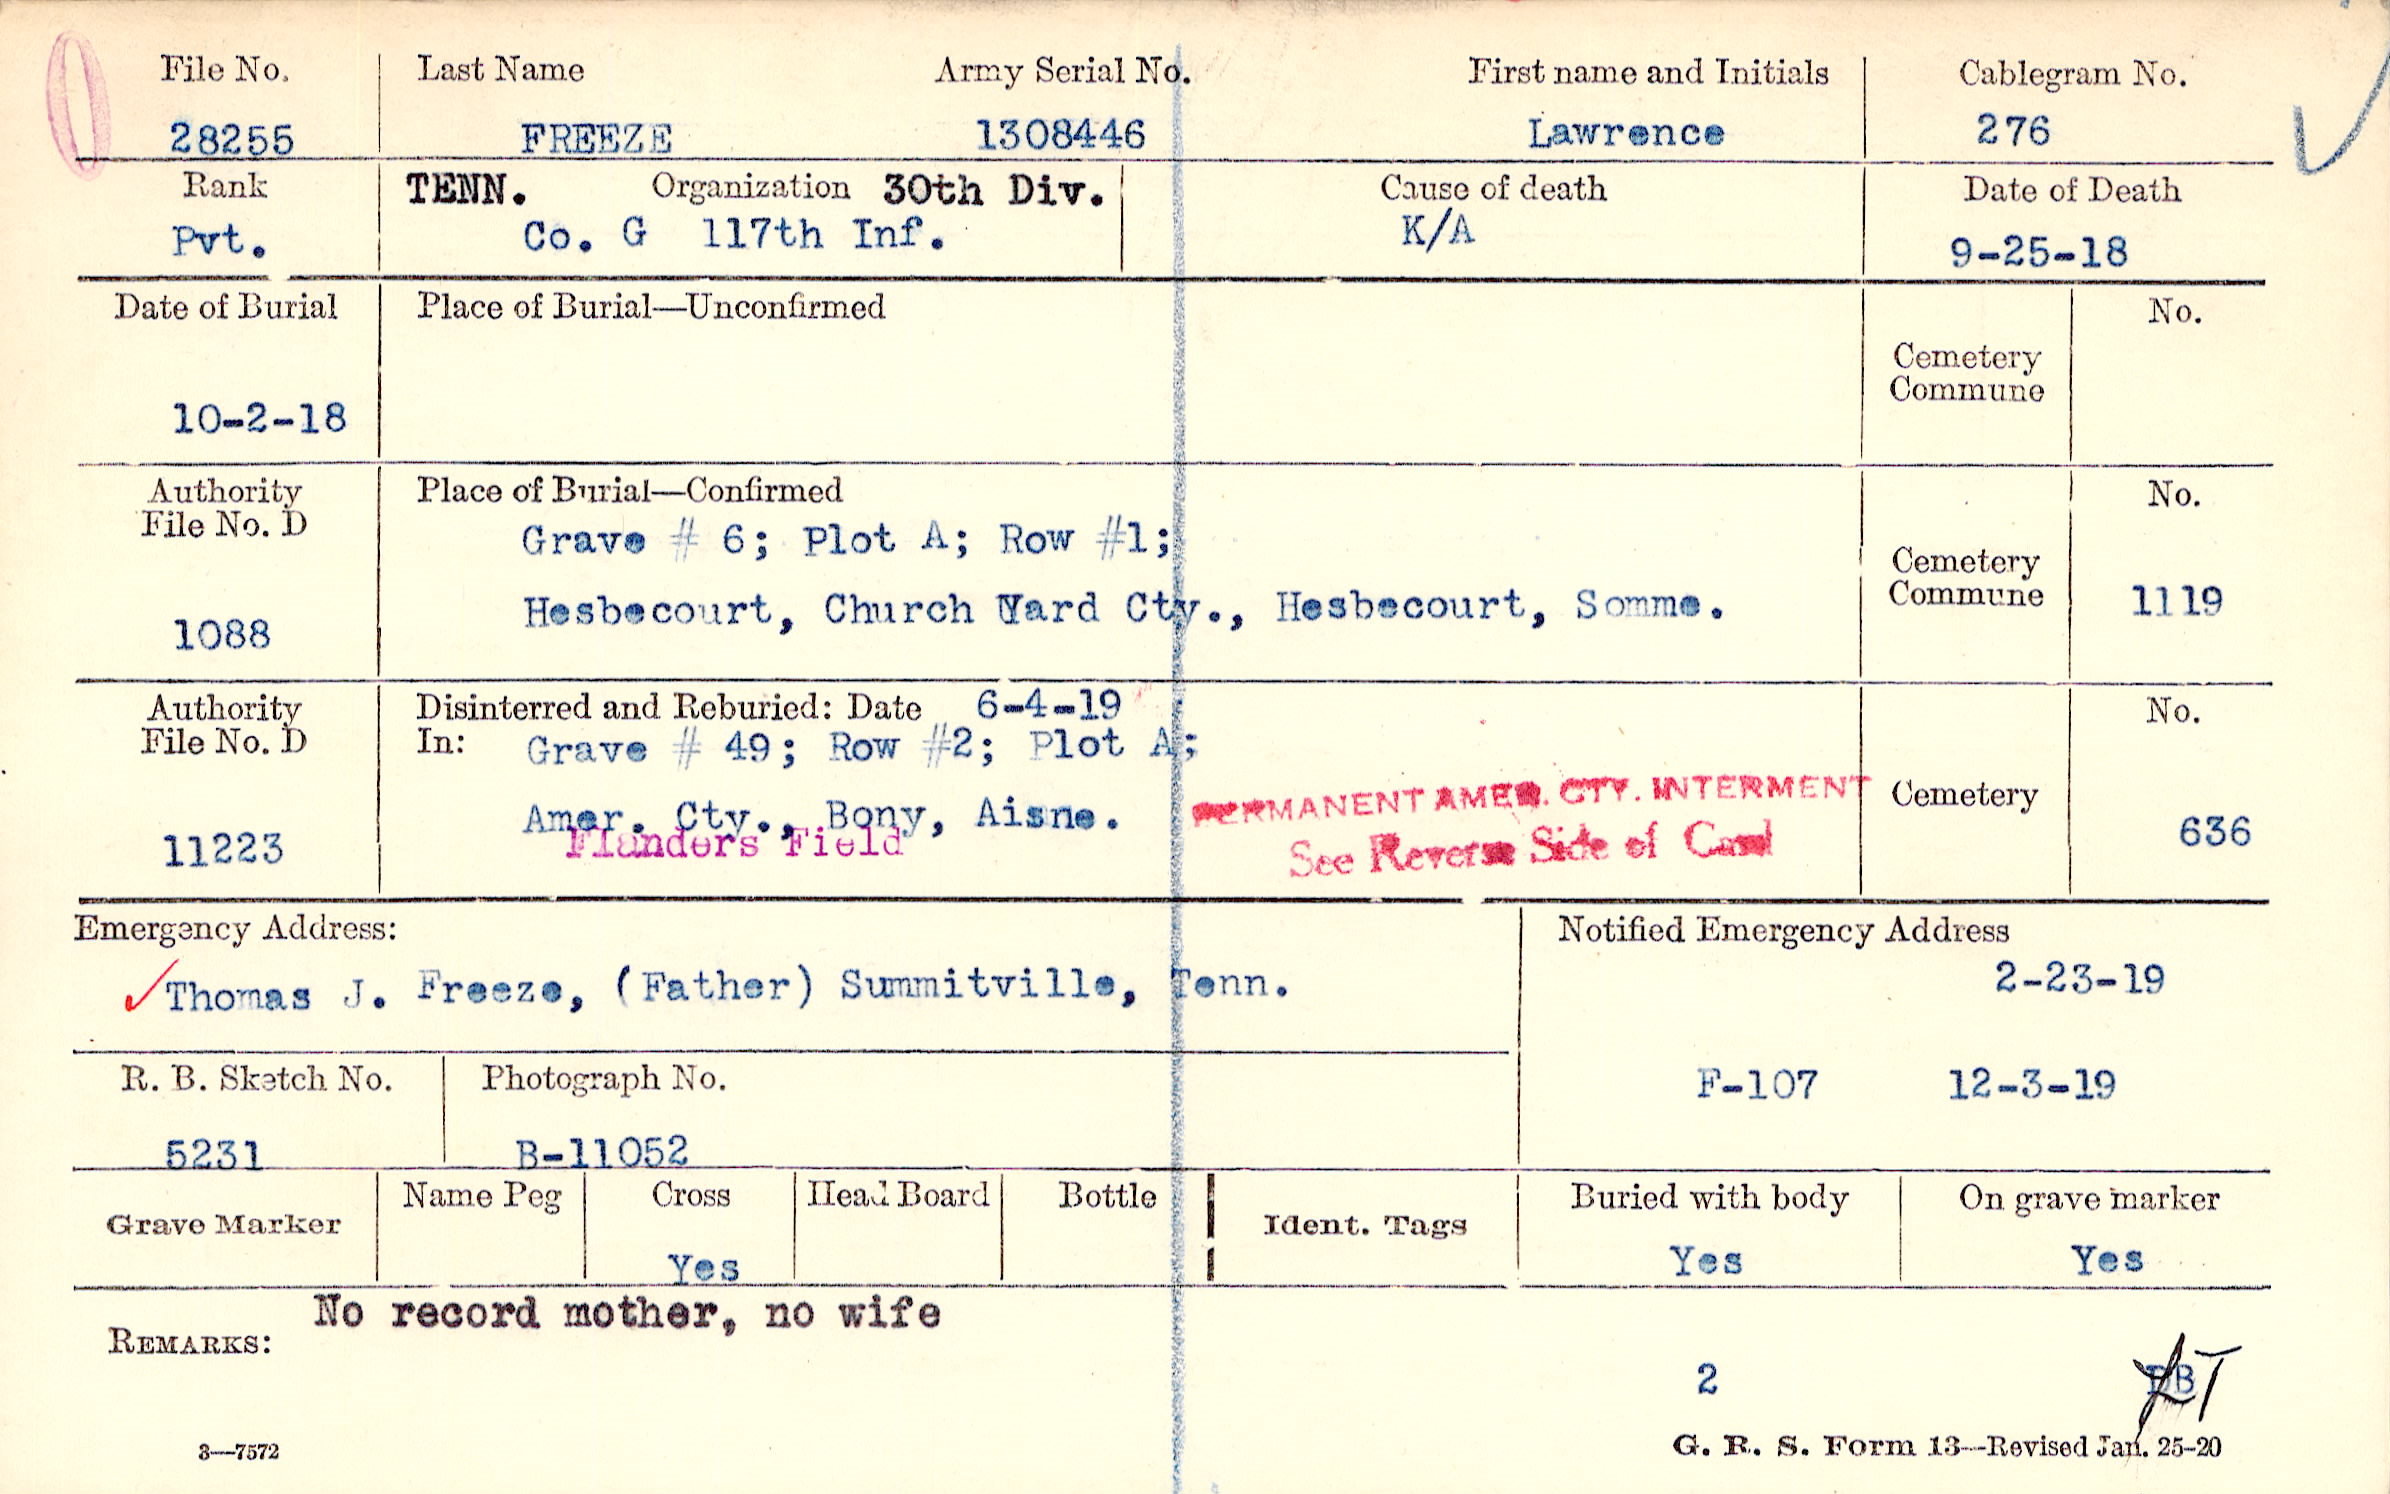 File No. Last Name Army Serial No. First name and Initials Cablegram No.
28255 FREEZE 1308446 Lawrence 276
Rank TENN. Organization 30th Div. Cause of death Date of Death
Pvt. Co. G 117th Inf. K/A 9-25-18
Date of Burial Place of Burial—Unconfirmed No.
Cemetery
Commune
10-2-18
Authority Place of Burial—Confirmed No.
File No. D
Grave # 6; Plot A; Row #1;
Cemetery
Commune
1088 Hesbecourt, Church Yard Cty., Hesbecourt, Somme. 1119
Authority Disinterred and Reburied: Date 6-4-19 No.
File No. D In: Grave # 49; Row #2; Plot A;
PERMANENT AMER. CTY. INTERMENT Cemetery
Amer. Cty., Bony, Aisne.
11223 Flanders Field See Reverse Side of Card 636
Emergency Address: Notified Emergency Address
Thomas J. Freeze, (Father) Summitville, Tenn. 2-23-19
R. B. Sketch No. Photograph No. F-107 12-3-19
5231 B-11052
Grave Marker Name Peg Cross Head Board Bottle Ident. Tags Buried with body On grave marker
Yes Yes Yes
No record mother, no wife
REMARKS:
2
3—7572 G. R. S. Form 13—Revised Jan. 25-20